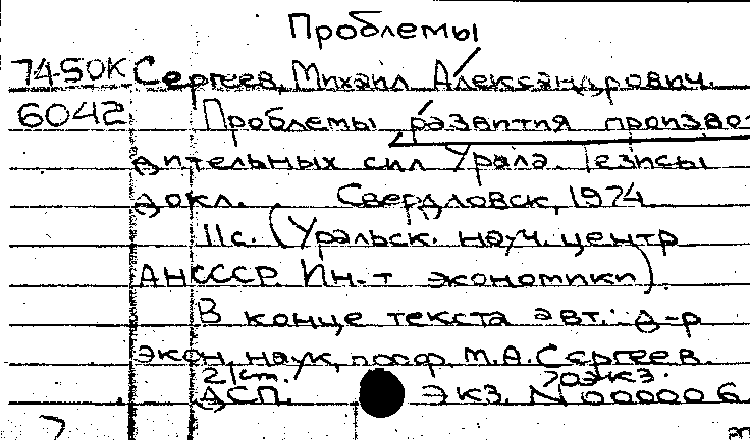 Проблемы
74-50К Сергеев, Михаил Александрович.
6042 Проблемы развития произво-
дительных сил Урала. Тезисы
докл. Свердловск, 1974
11с. (Уральск. науч. центр
АНСССР. Ин-т экономики).
В конце текста авт.: д-р
экон. наук, проф. М.А. Сергеев.
21ст. 70экз.
ДСП. экз. №000006